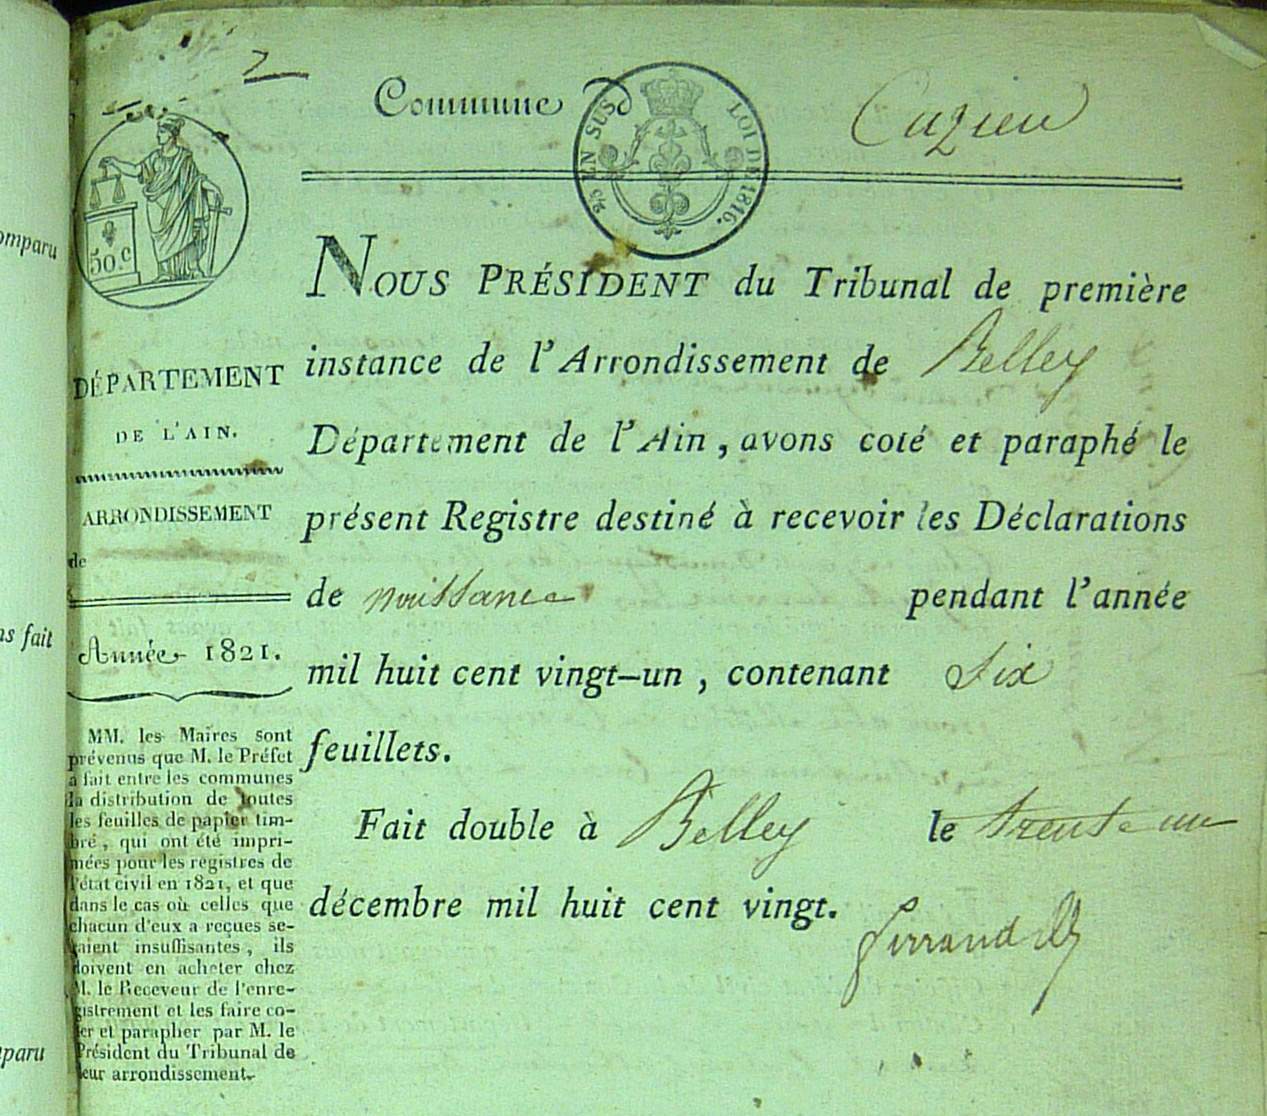 2
Commune D Cuzieu
2/5 EN SUS
LOI DE 1816.
50.C
DÉPARTEMENT
DE L'AIN.
ARRONDISSEMENT
de
Année 1821.
MM. les Maires sont
prévenus que M. le Préfet
a fait entre les communes
la distribution de toutes
les feuilles de papier tim-
bré, qui ont été impri-
mées pour les registres de
l'état civil en 1821, et que
dans le cas où celles que
chacun d'eux a reçues se-
raient insuffisantes, ils
doivent en acheter chez
M. le Receveur de l'enre-
gistrement et les faire co-
ter et parapher par M. le
Président du Tribunal de
leur arrondissement.
NOUS PRÉSIDENT du Tribunal de première
instance de l'Arrondissement de Belley
Département de l'Ain, avons coté et paraphé le
présent Registre destiné à recevoir les Déclarations
de naissance pendant l'année
mil huit cent vingt-un, contenant Six
feuillets.
Fait double à Belley le trente un
décembre mil huit cent vingt.
omparu
ns fait
mparu